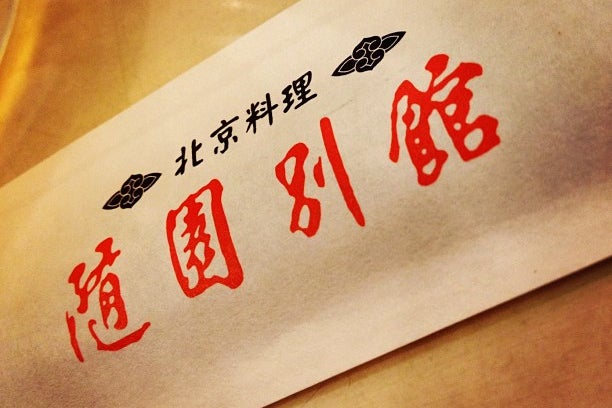 北京料理
隨園別館